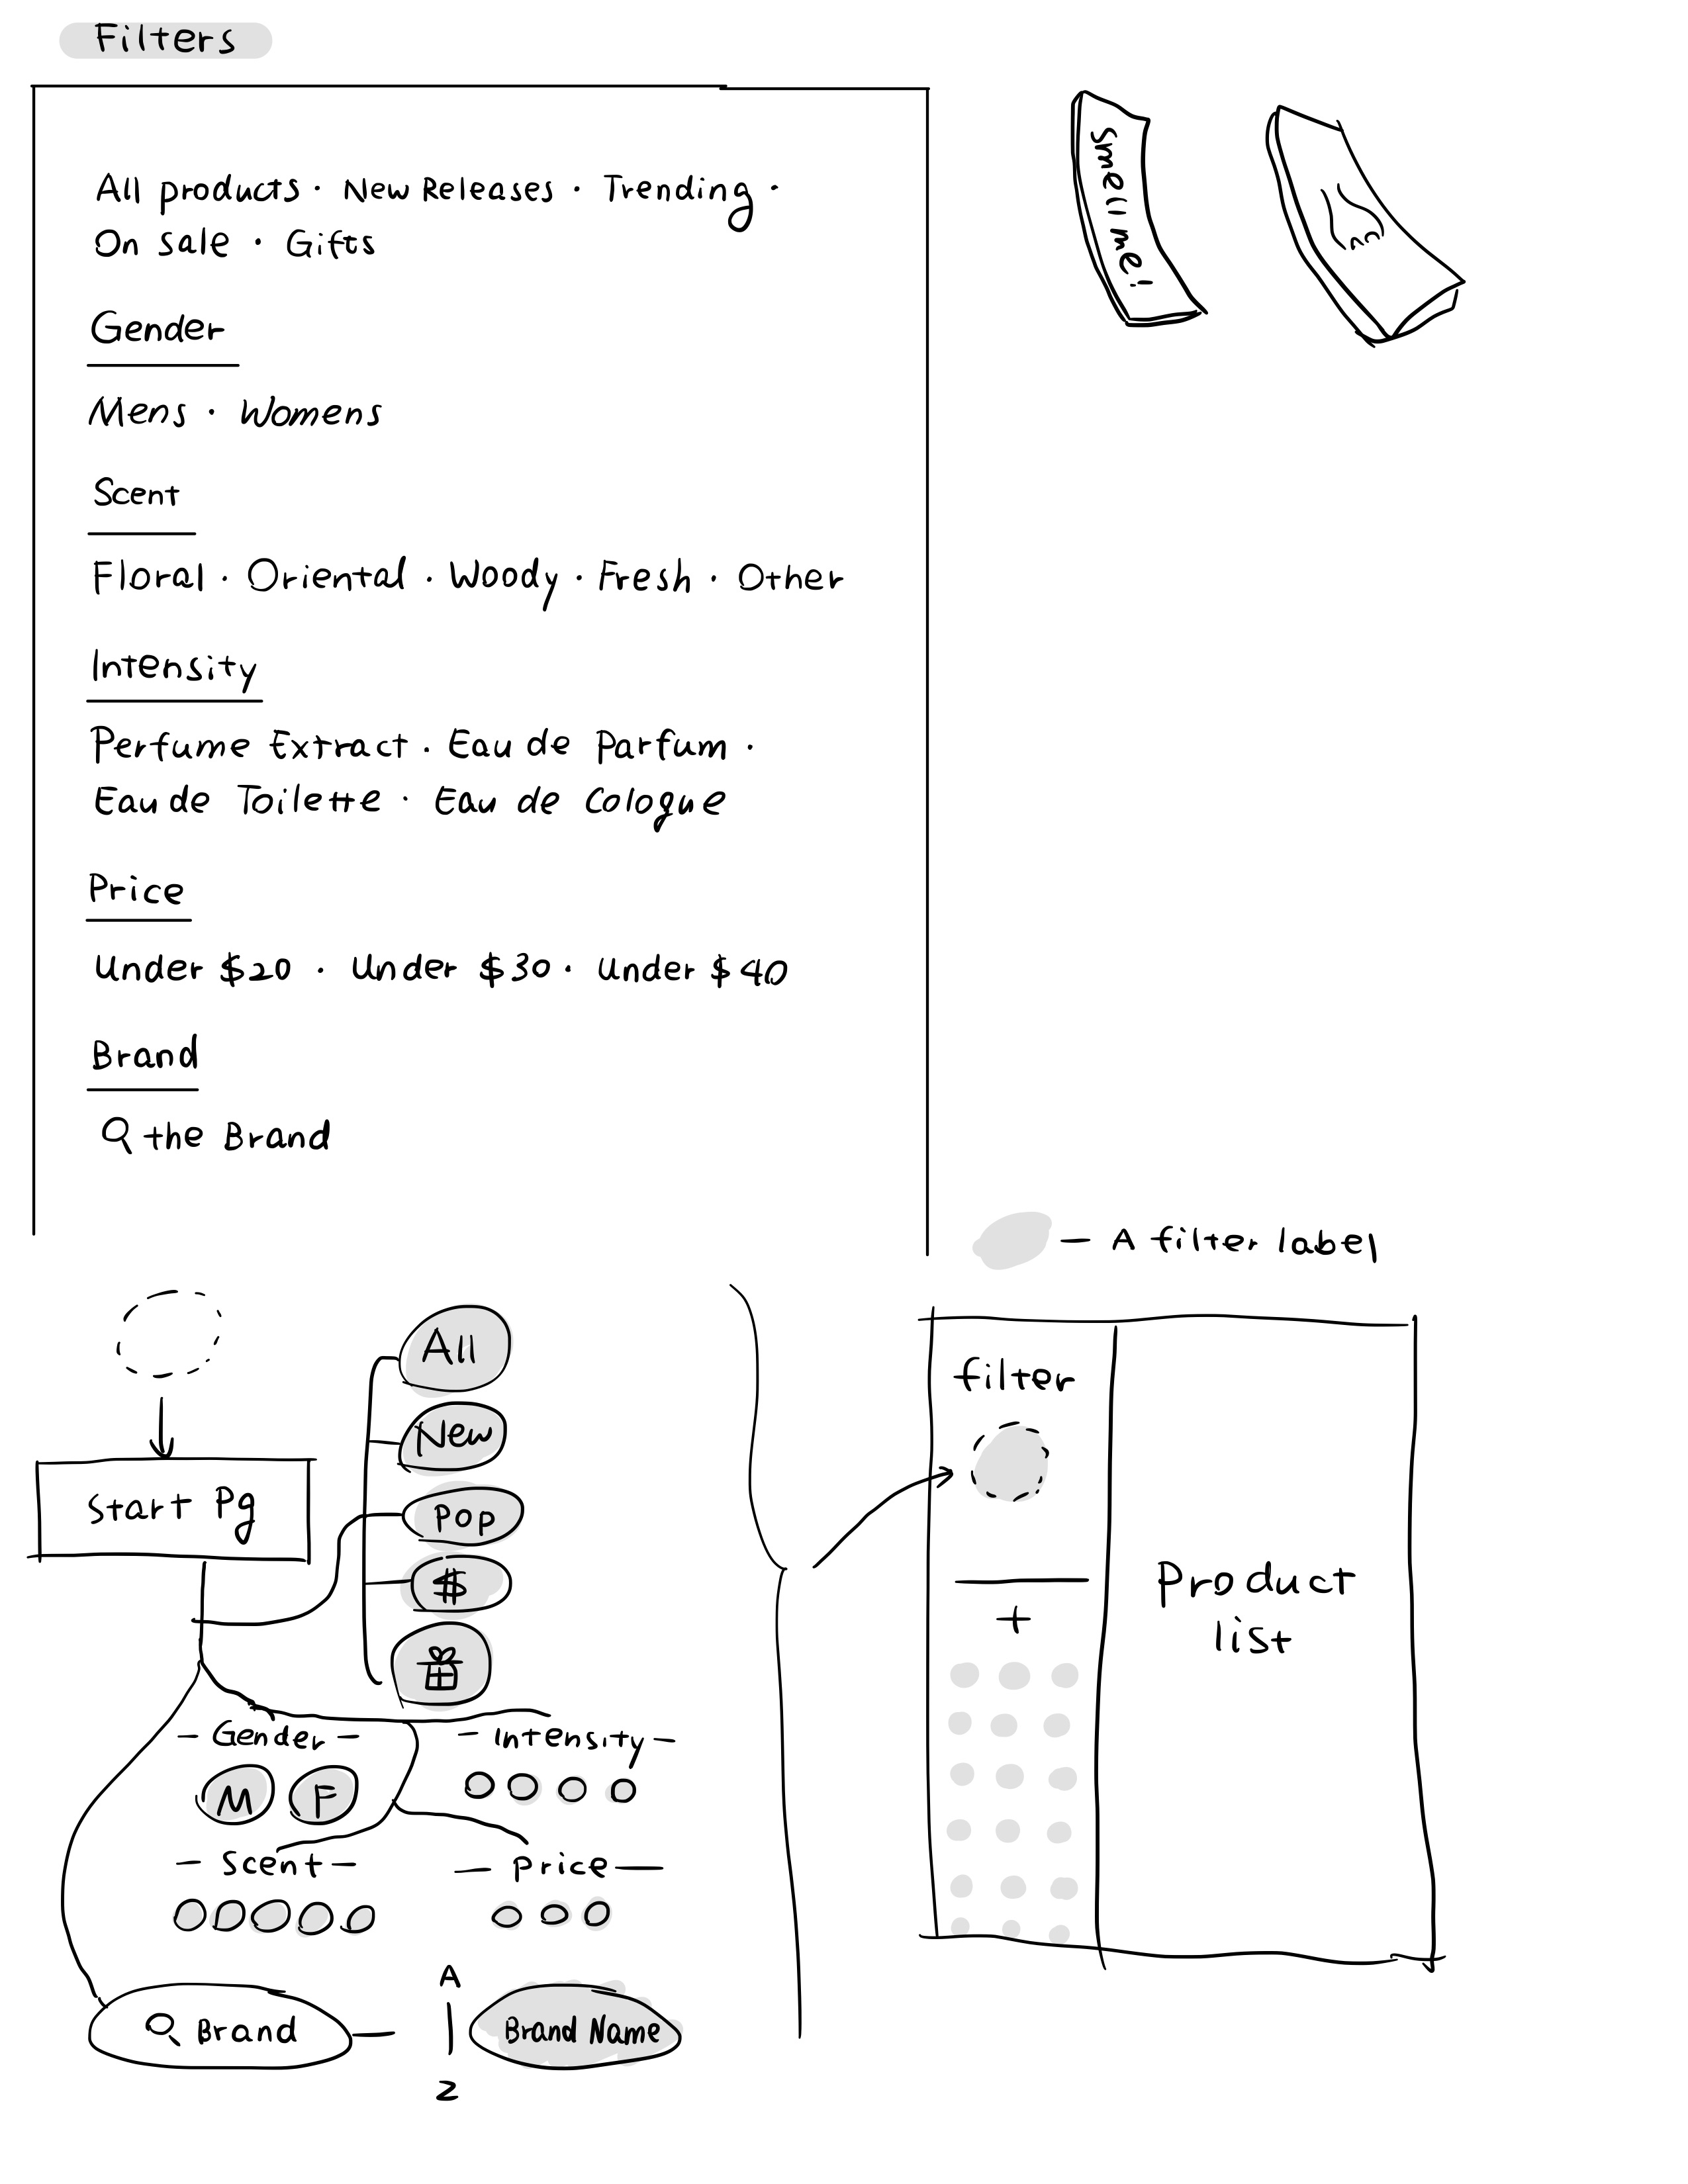 Filters
All products · New Releases · Trending ·
On sale · Gifts
Gender
Mens · Womens
Scent
Floral · Oriental · Woody · Fresh · Other
Intensity
Perfume Extract · Eau de Parfum ·
Eau de Toilette · Eau de Cologne
Price
Under $20 · Under $30 · Under $40
Brand
the Brand
smell me!
— A filter label
All
New
Pop
$
Start Pg
- Gender -
M F
- Intensity -
- Scent -
- Price -
Brand
A
Z
Brand Name
filter
+
Product
list